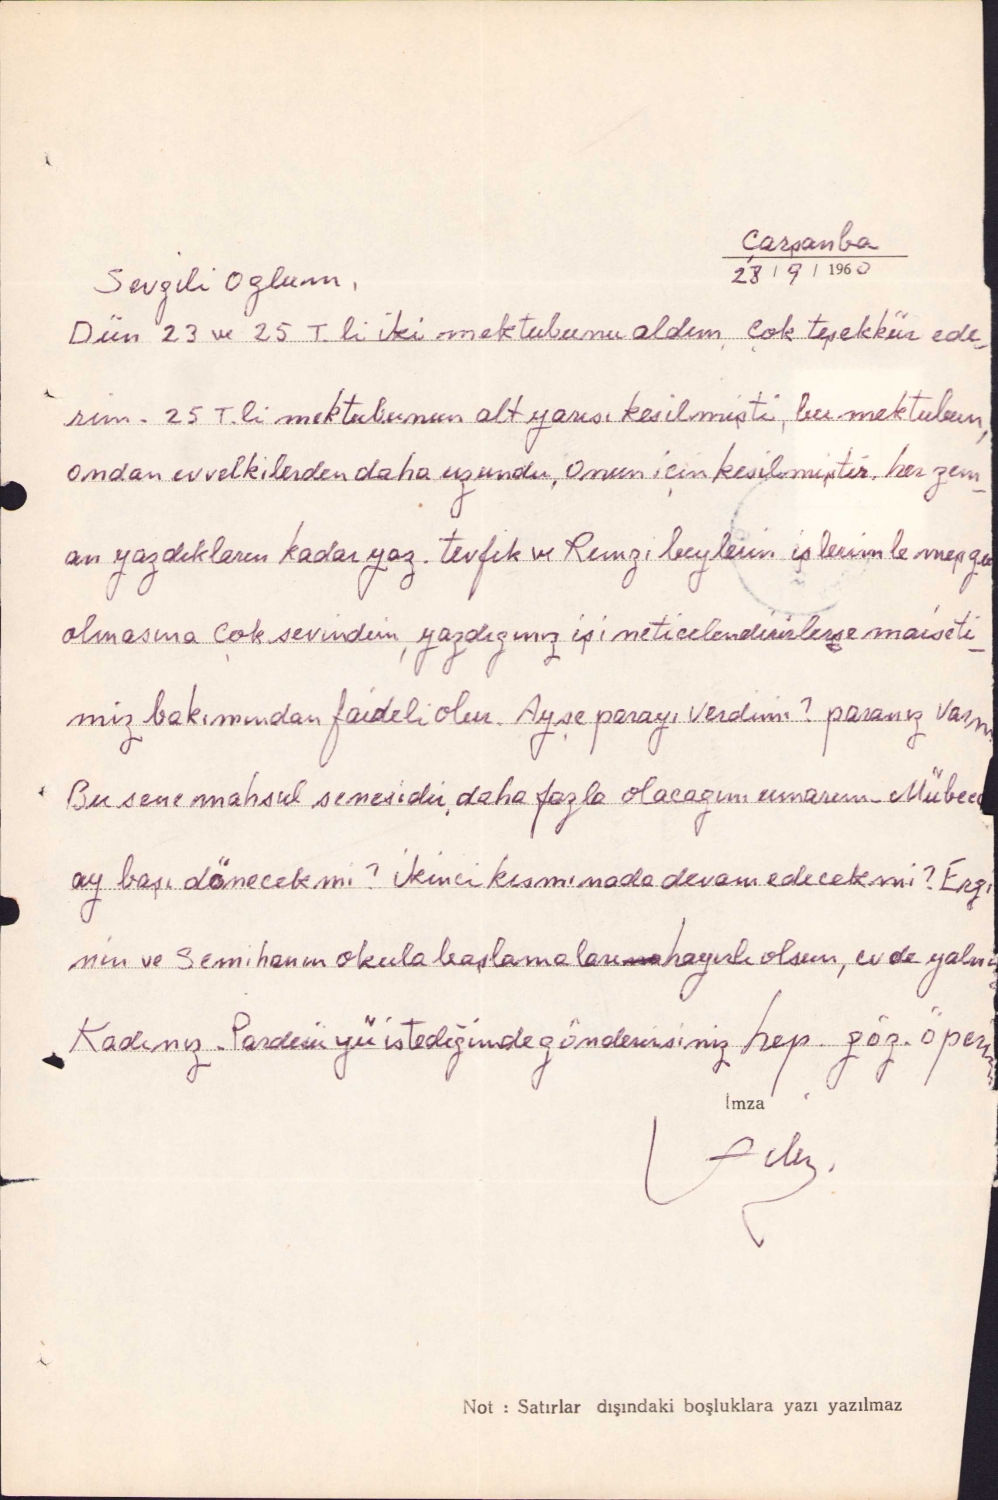 Çarşanba
28/9/1960
Sevgili Oglum,
Dün 23 ve 25 T.li iki mektubunu aldım, çok teşekkür ede-
rim. 25 T.li mektubunun alt yarısı kesilmişti, bu mektubun,
ondan evvelkilerden daha uzundu, onun için kesilmiştir. her zem-
an yazdıkların kadar yaz. Tevfik ve Remzi beylerin işlerimle meşgu
olmasına çok sevindim, yazdıgınız işi neticelendirirlerse maişeti-
miz bakımından faideli olur. Ayşe parayı verdimi? paranız varm
Bu sene mahsul senesidir, daha fazla olacagını umarım. Mübecc
ay başı dönecekmi? ikinci kısmınada devam edecekmi? Ergi
nin ve Semihanın okula başlamaları hayırlı olsun, evde yalnız
Kadınız. Pardesüyü istediğimde gönderirsiniz hep. göz. öperi
İmza
Not : Satırlar dışındaki boşluklara yazı yazılmaz